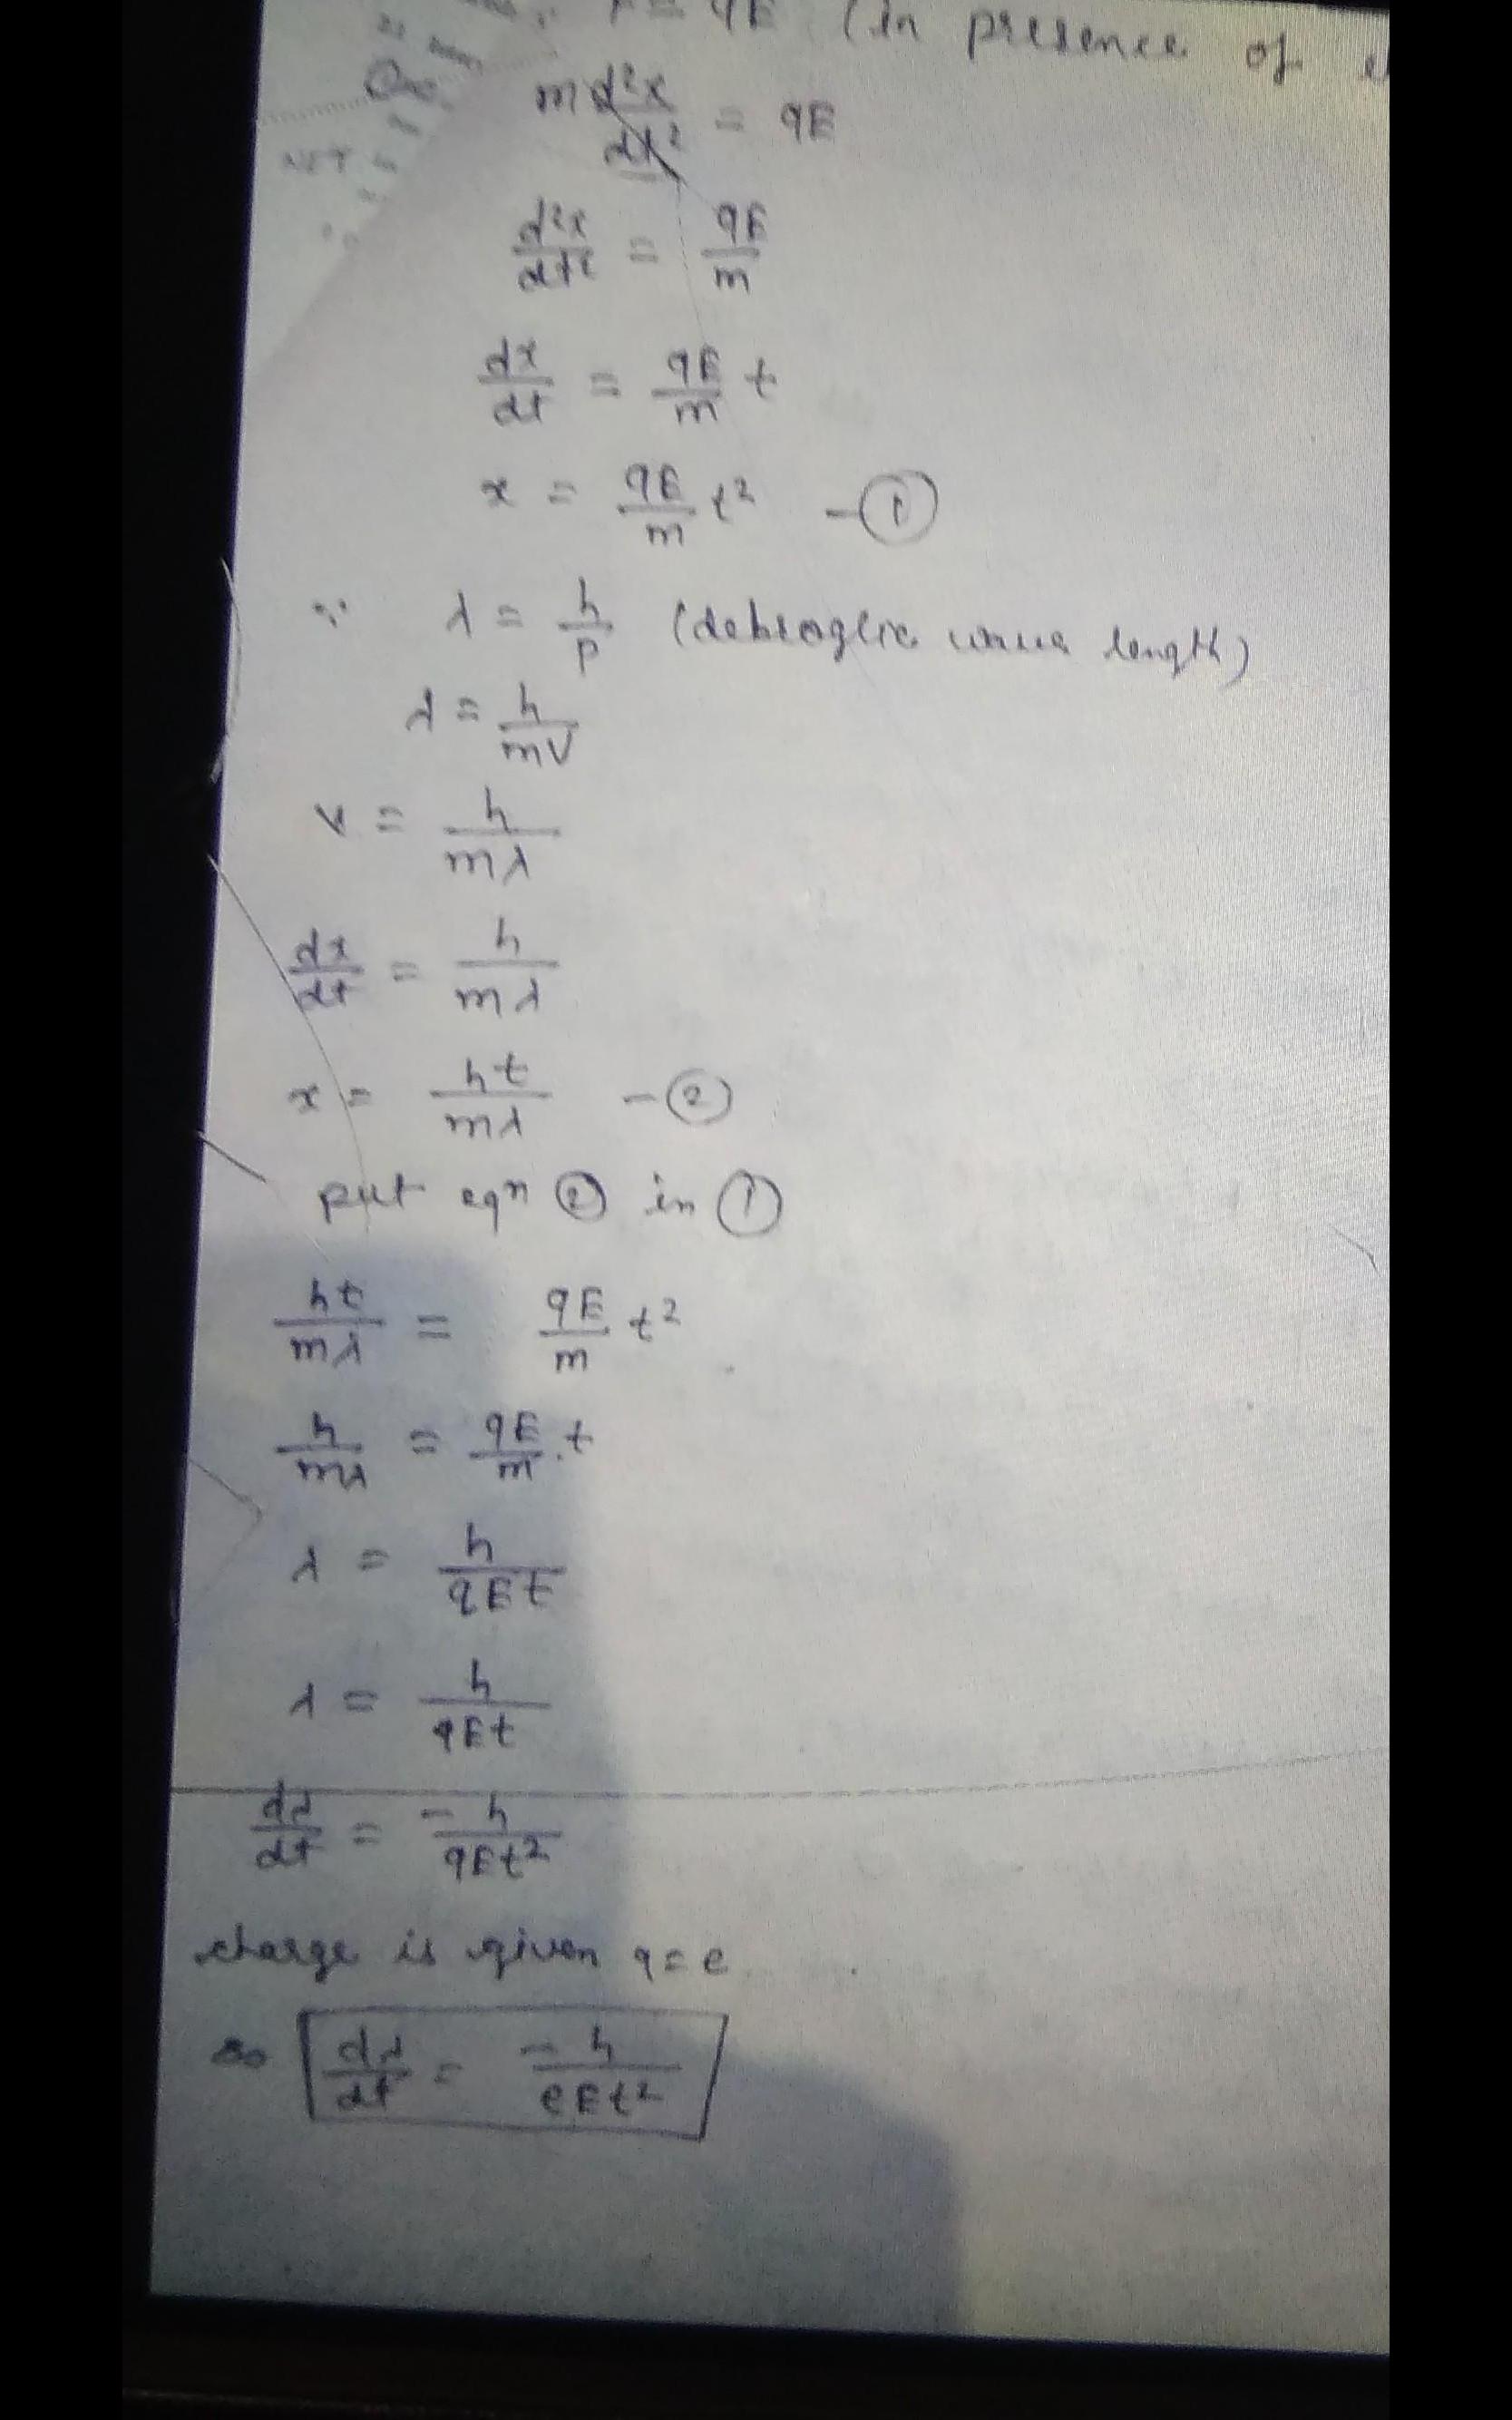 = qE (in presence of
m d²x/dt² = qE
d²x/dt² = qE/m
dx/dt = qE/m t
x = qE/m t² - ①
∵ λ = h/p (debroglie wave length)
λ = h/mV
v = h/mλ
dx/dt = h/mλ
x = ht/mλ - ②
put eqⁿ ② in ①
ht/mλ = qE/m t²
h/mλ = qE/m . t
λ = h/qEt
λ = h/qEt
dλ/dt = -h/qEt²
charge is given q = e
so dλ/dt = -h/eEt²